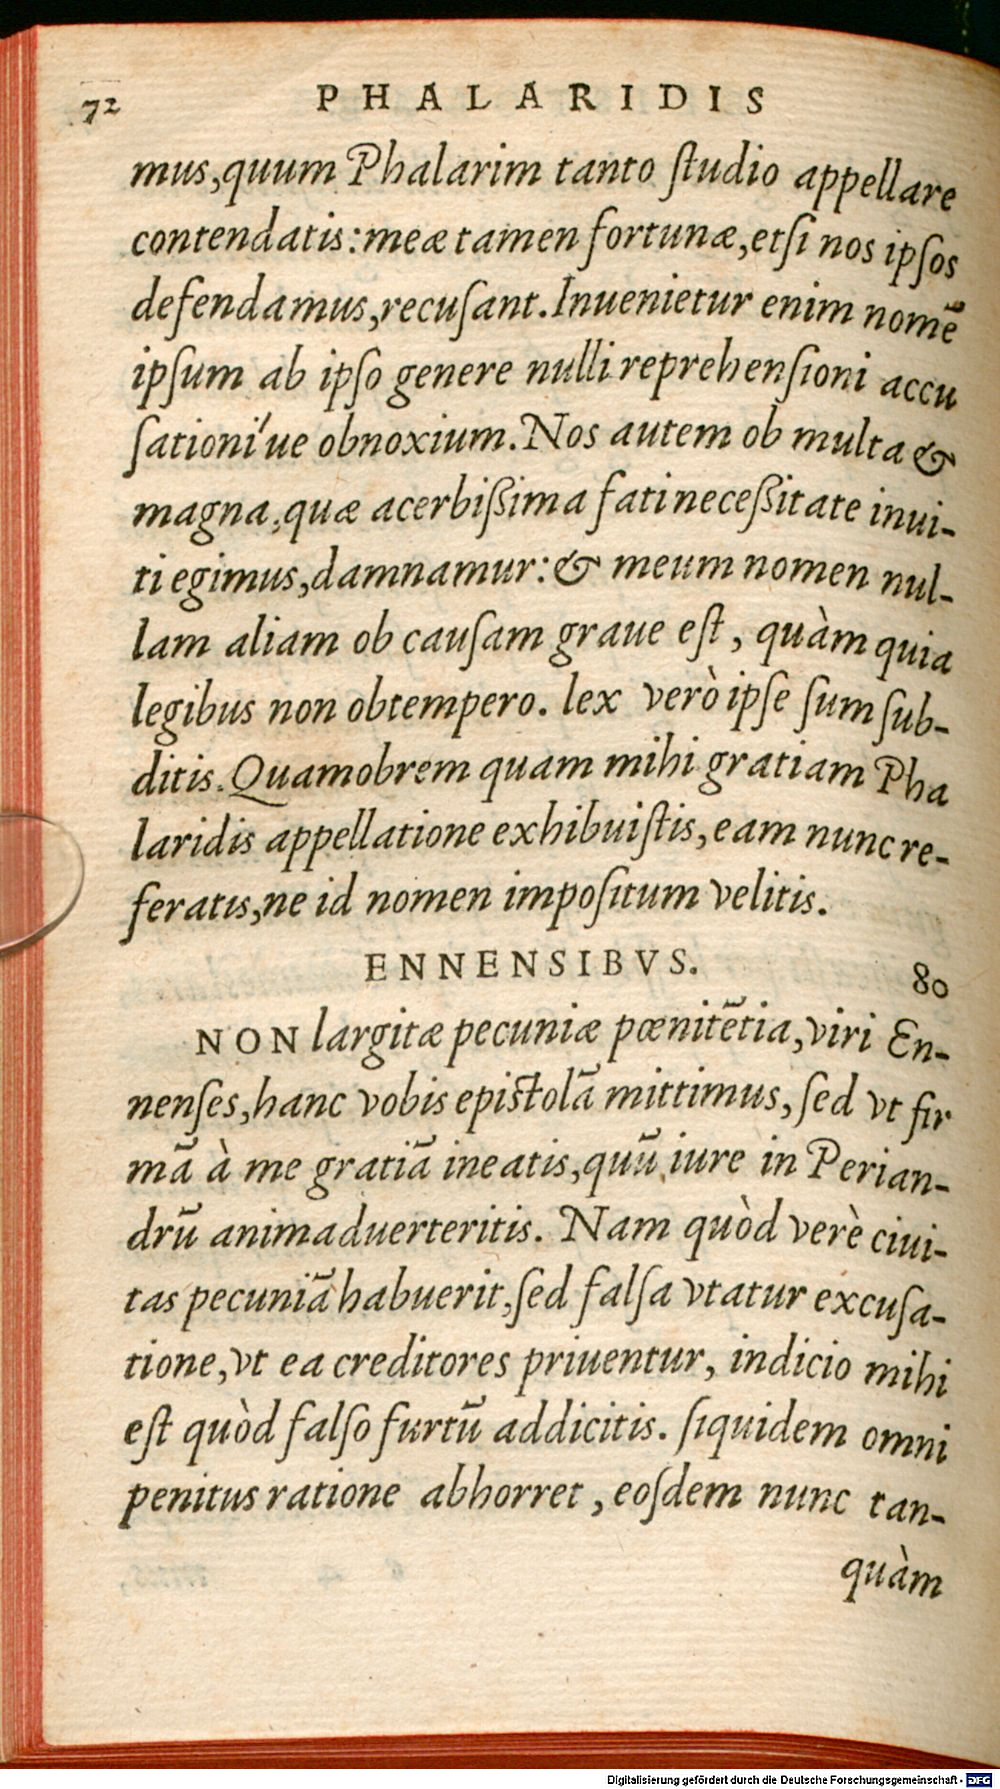 72 PHALARIDIS
mus,quum Phalarim tanto ſtudio appellare
contendatis:meæ tamen fortunæ,etſi nos ipſos
defendamus,recuſant.Inuenietur enim nomē
ipſum ab ipſo genere nulli reprehenſioni accu
ſationi´ue obnoxium.Nos autem ob multa &
magna,quæ acerbißima fati neceßitate inui-
ti egimus,damnamur:& meum nomen nul-
lam aliam ob cauſam graue eſt, quàm quia
legibus non obtempero. lex verò ipſe ſum ſub-
ditis.Quamobrem quam mihi gratiam Pha
laridis appellatione exhibuiſtis,eam nunc re-
feratis,ne id nomen impoſitum velitis.
ENNENSIBVS. 80
NON largitæ pecuniæ pœnitētia,viri En-
nenſes,hanc vobis epiſtolā mittimus, ſed vt fir
mā à me gratiā ineatis,quū iure in Perian-
drū animaduerteritis. Nam quòd verè ciui-
tas pecuniā habuerit,ſed falſa vtatur excuſa-
tione,vt ea creditores priuentur, indicio mihi
eſt quòd falſo furtū addicitis. ſiquidem omni
penitus ratione abhorret, eoſdem nunc tan-
quàm
Digitalisierung gefördert durch die Deutsche Forschungsgemeinschaft - DFG